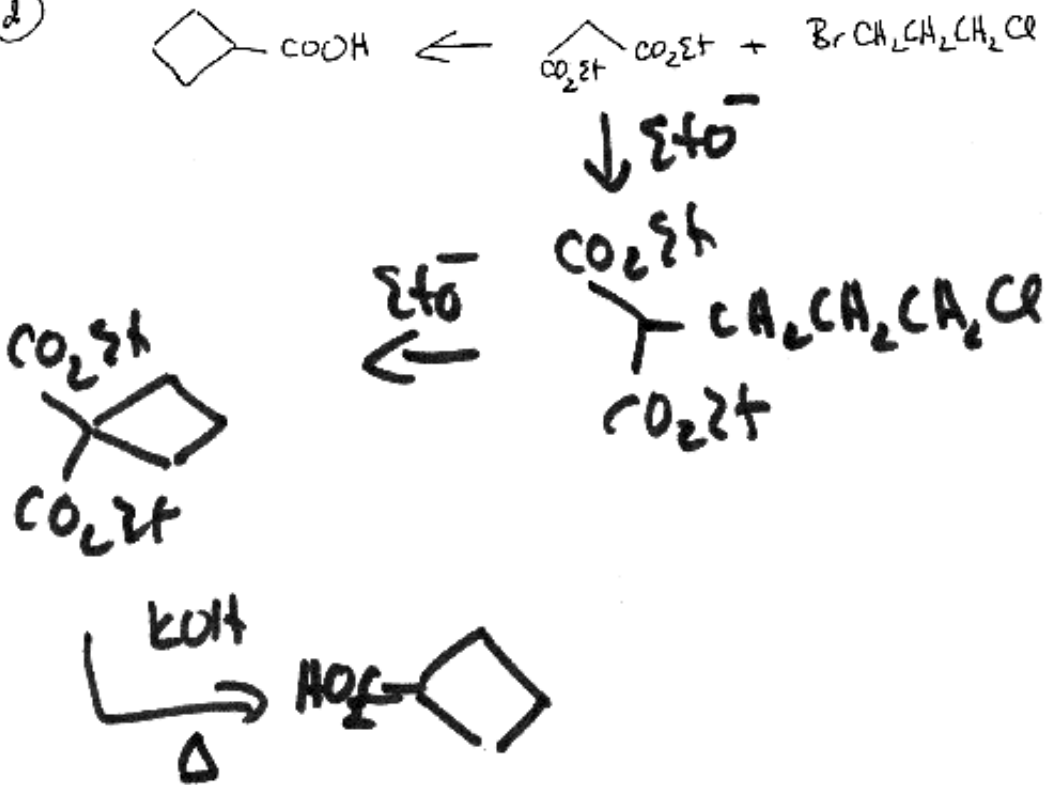 2
COOH ← CO₂Et CO₂Et + Br CH₂CH₂CH₂Cl
↓ EtO⁻
CO₂Et
EtO⁻
←
CH₂CH₂CH₂Cl
CO₂Et
CO₂Et
CO₂Et
KOH
Δ
HO₂C